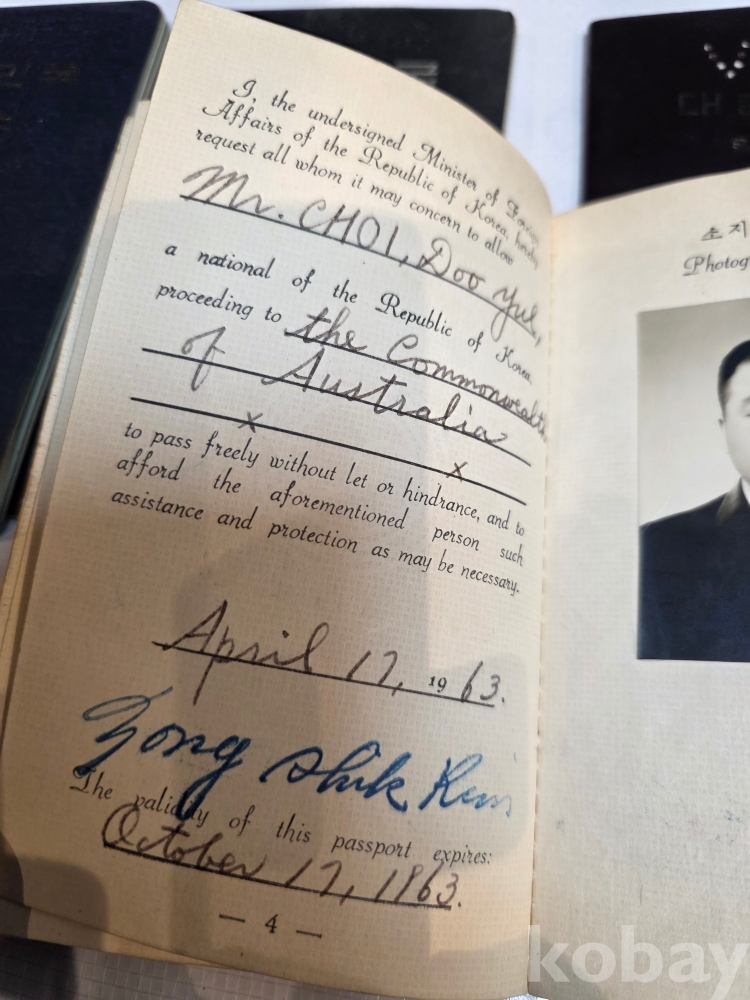 I, the undersigned Minister of Foreign
Affairs of the Republic of Korea, hereby
request all whom it may concern to allow
Mr. CHOI, Doo Yul,
a national of the Republic of Korea,
proceeding to the Commonwealth
of Australia
x x
to pass freely without let or hindrance, and to
afford the aforementioned person such
assistance and protection as may be necessary.
April 17, 1963.
Yong Shik Kim
The validity of this passport expires:
October 17, 1963.
— 4 —
소지
Photog
kobay